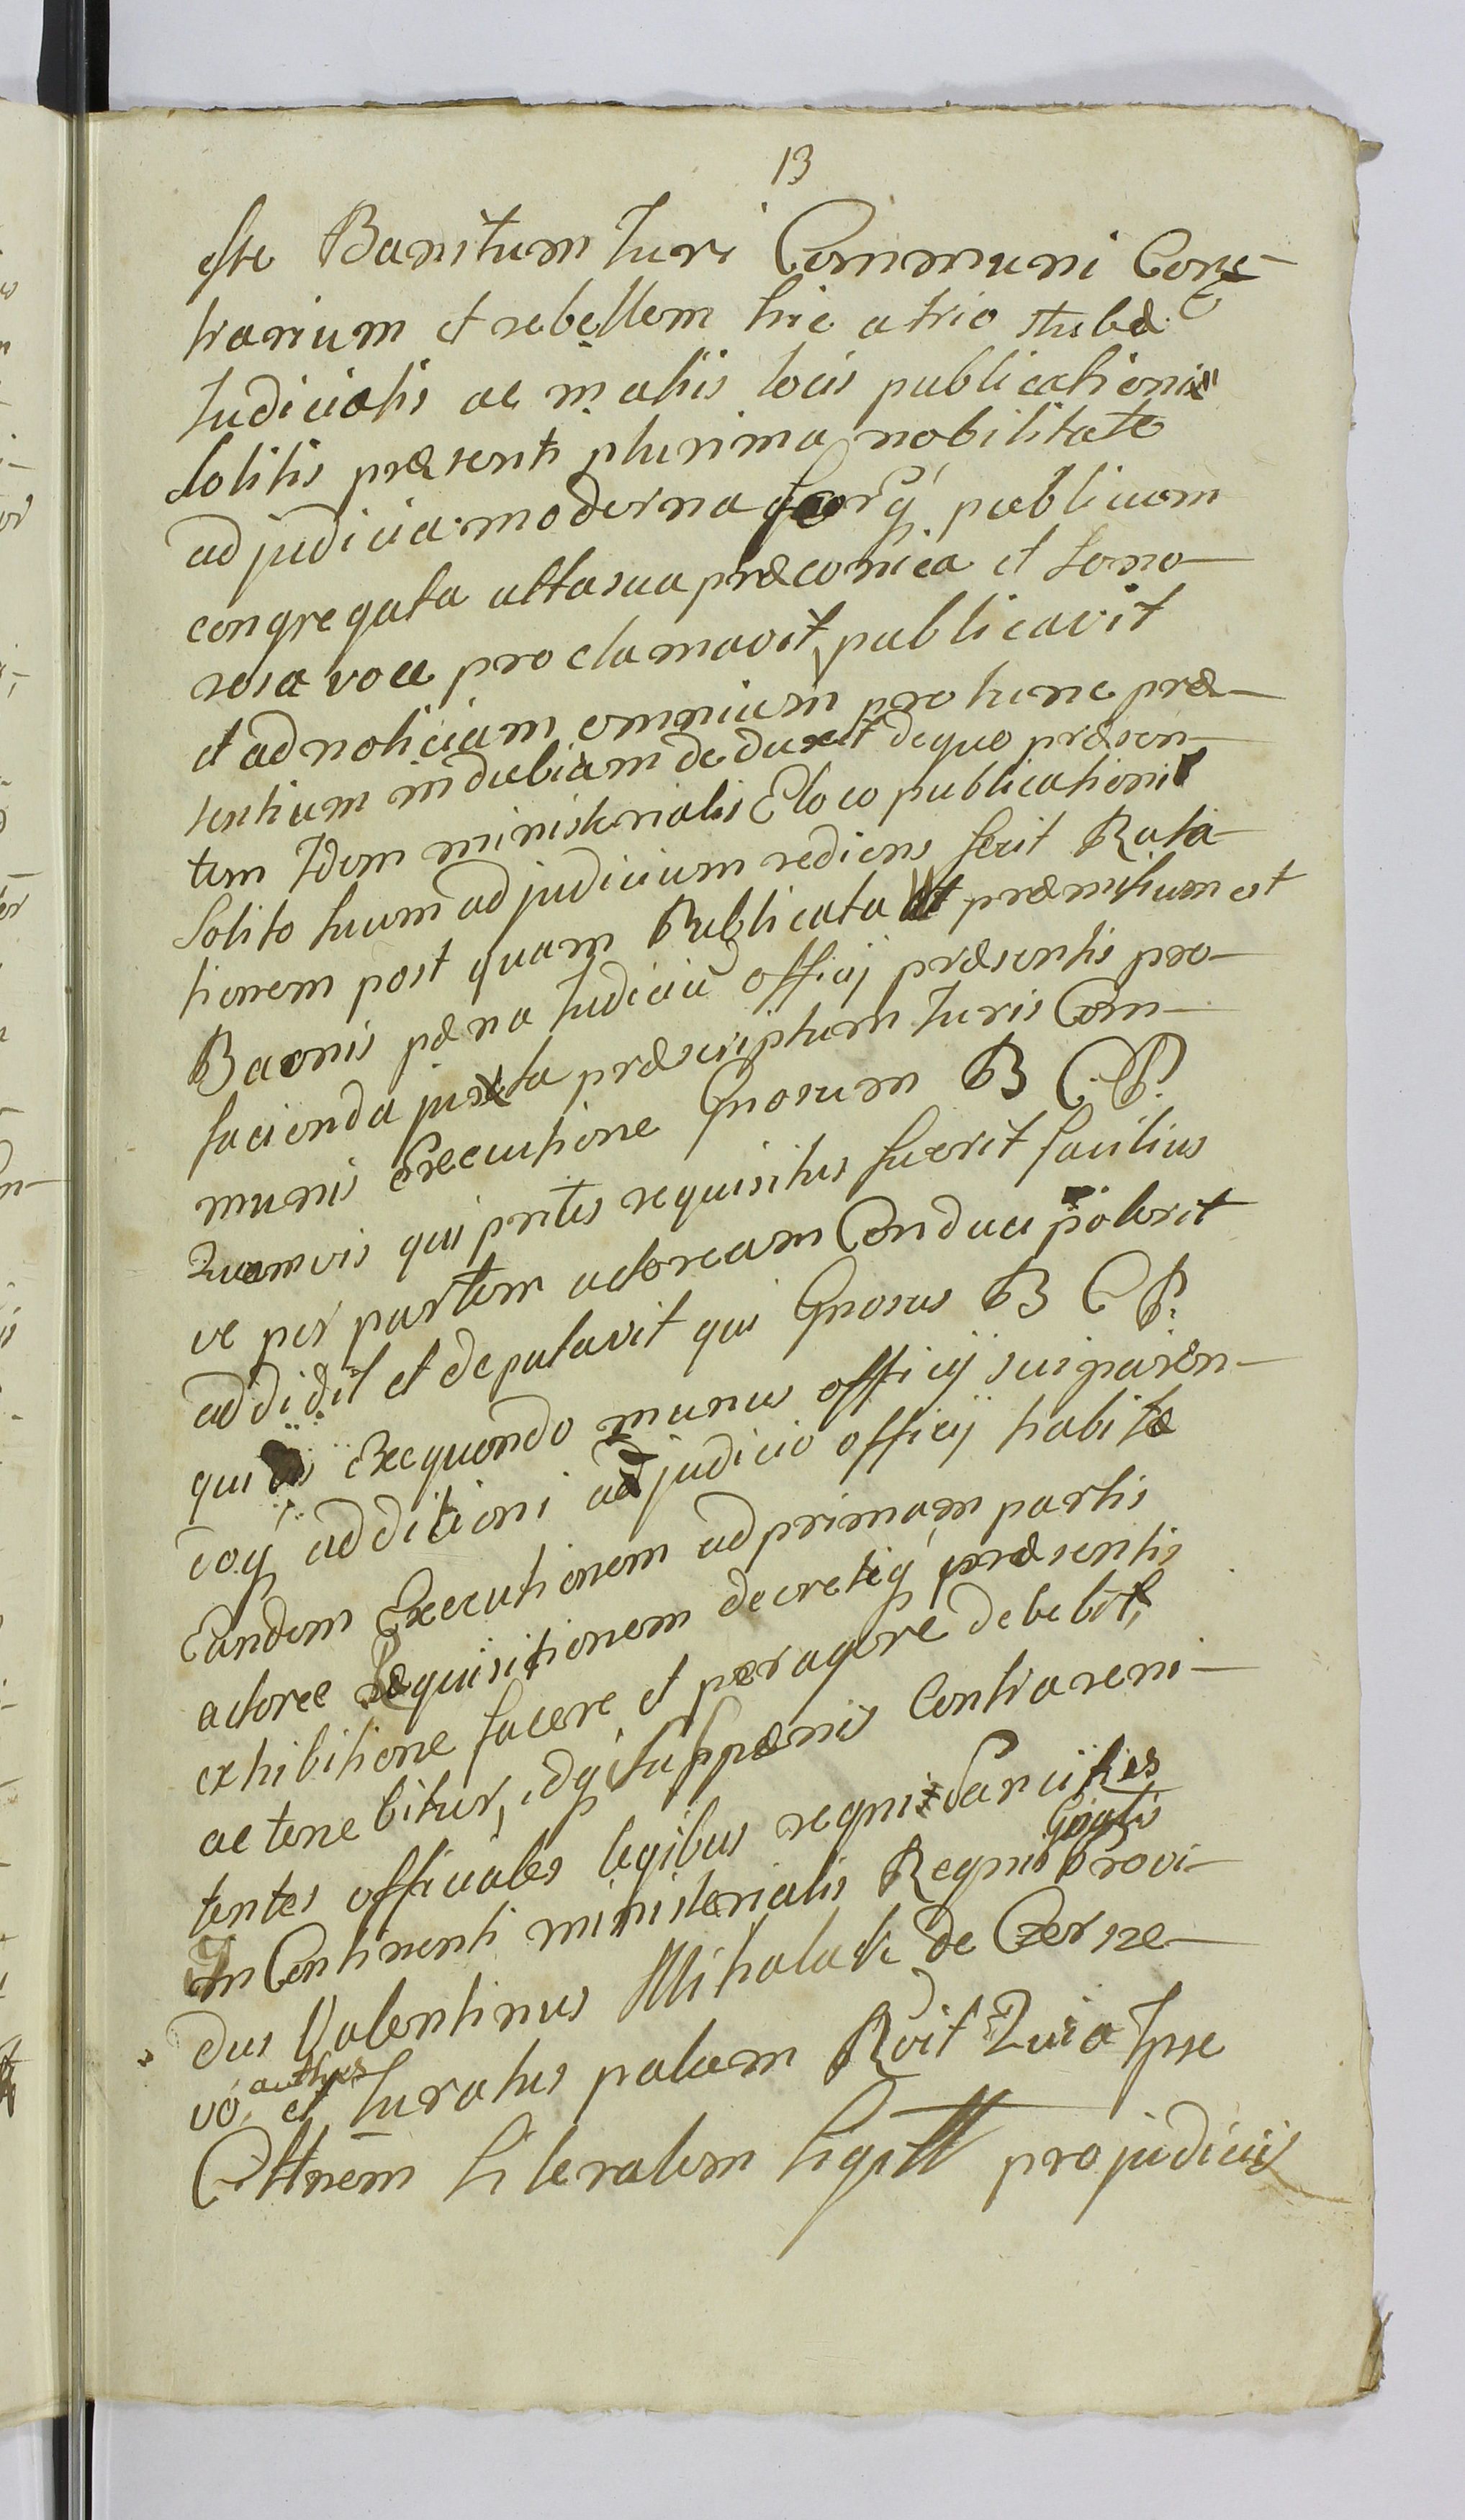 13
esse Banitum Iuri Communi Con-
trarium et rebellem hic atrio stubæ
Iudicialis ac in aliis locis publicationis
solitis præsenti plurima nobilitate
ad judicia moderna publicum
congregata alta sua præconica et sono-
rosa voce proclamavit, publicavit
et ad noticiam omnium pro tunc præ-
sentium indubiam deduxit de quo præsen-
tem Idem ministerialis E loco publicationis
solito tuum ad judicium rediens fecit Rela-
tionem post quam Publicata ut præmissum est
Baonis pæna Iudiciū officij præsentis pro-
facienda juxta præscriptum Iuris Com-
munis Executione Gnosum B C P.
Quamvis qui prites requisitus fuerit facilius
ve per partem actoream Conduci poterit
addidit et deputavit qui Gnosus B C P.
qui exequendo munus officij sui paren-
doq additioni ad judicio officij habitæ
Eandem Executionem ad primam partis
actoreæ Requisitionem decretiq præsentis
exhibitione facere et peragere debebit,
ac tenebitur, idq sub pænis Contraveni-
entes officiales legibus regni Sancitis
In Continenti ministerialis Regni Gñalis Provi-
dus Valentinus Mihalak de Czerne-
vo, authus et Iuratus palam Rvit Quia Ipse
Citthnem Literalem pro judiciis